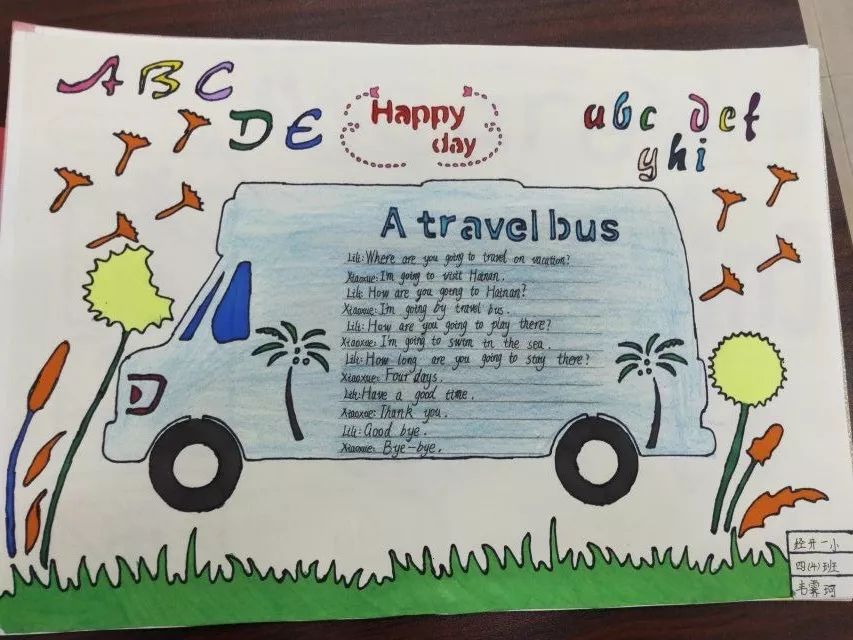 ABC
DE
Happy
day
abc def
ghi
A travel bus
Lili: Where are you going to travel on vacation?
Xiaoxue: I'm going to visit Hainan.
Lili: How are you going to Hainan?
Xiaoxue: I'm going by travel bus.
Lili: How are you going to play there?
Xiaoxue: I'm going to swim in the sea.
Lili: How long are you going to stay there?
Xiaoxue: Four days.
Lili: Have a good time.
Xiaoxue: Thank you.
Lili: Good bye.
Xiaoxue: Bye-bye.
经开一小
四(4)班
韦霁珂